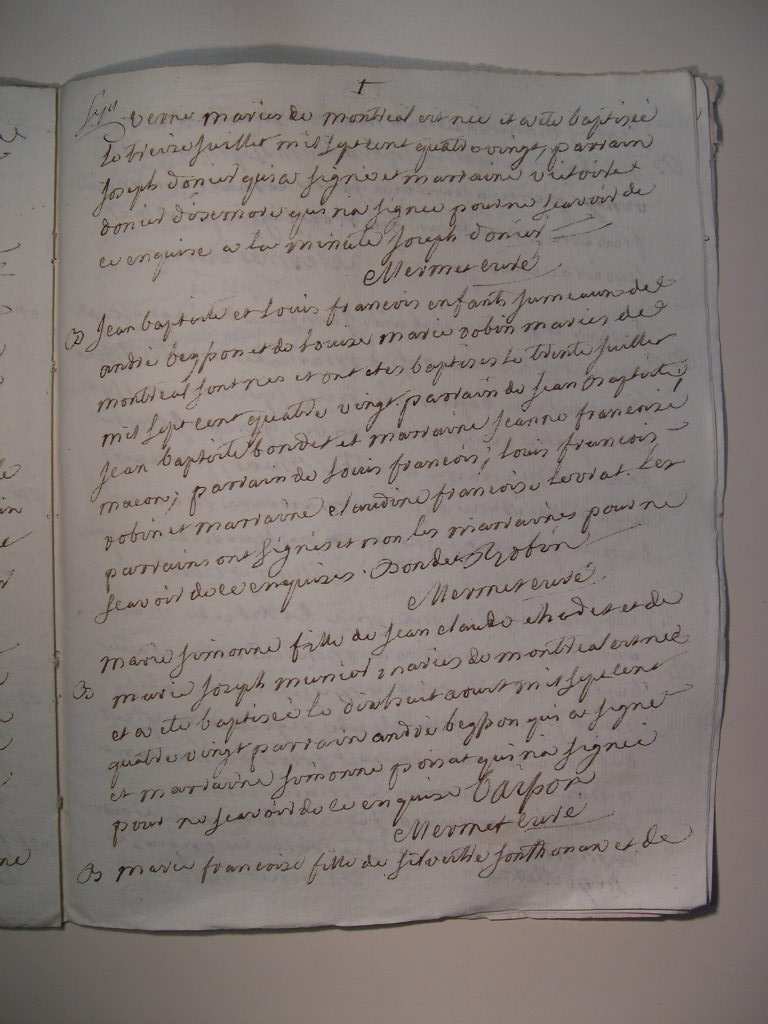 verne maries de montreal est née et a ete baptiseé
le treize juillet mil sept cent quatre vingt, parrain
joseph donier qui a signé et marraine victoire
donier qui n'a signée pour ne sçavoir de
ce enquise a la minute joseph donier
Mermet curé
B jean baptiste et louis francois enfants jumeaux de
andré begpon et de louise marie robin maries de
montreal sont nes et ont etes baptises le trente juillet
mil sept cent quatre vingt parrain de jean Baptiste;
jean baptiste bondet et marraine jeanne francoise
macon; parrain de louis francois; louis francois
robin et marraine claudine francoise levrat. les
parrains ont signés et non les marraines pour ne
sçavoir de ce enquises. Bondet Robin
Mermet curé.
marie simonne fille de jean claude chadet et de
B marie joseph munier maries de montreal est née
et a ete baptiseé le dixhuit aoust mil sept cent
quatre vingt parrain andré begpon qui a signé
et marraine simonne ponsat qui n'a signeé
pour ne sçavoir de ce enquise
Mermet curé
B marie francoise fille de silvestre sonthonax et de